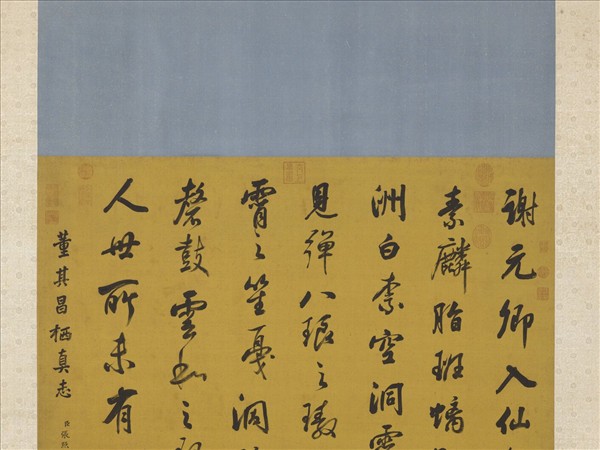 謝元卿入仙
素麟脂班螭
洲白柰空洞靈
見彈八琅之璈
霄之笙戛洞
磬鼓雲和之
人世所未有
董其昌栖真志
臣張照